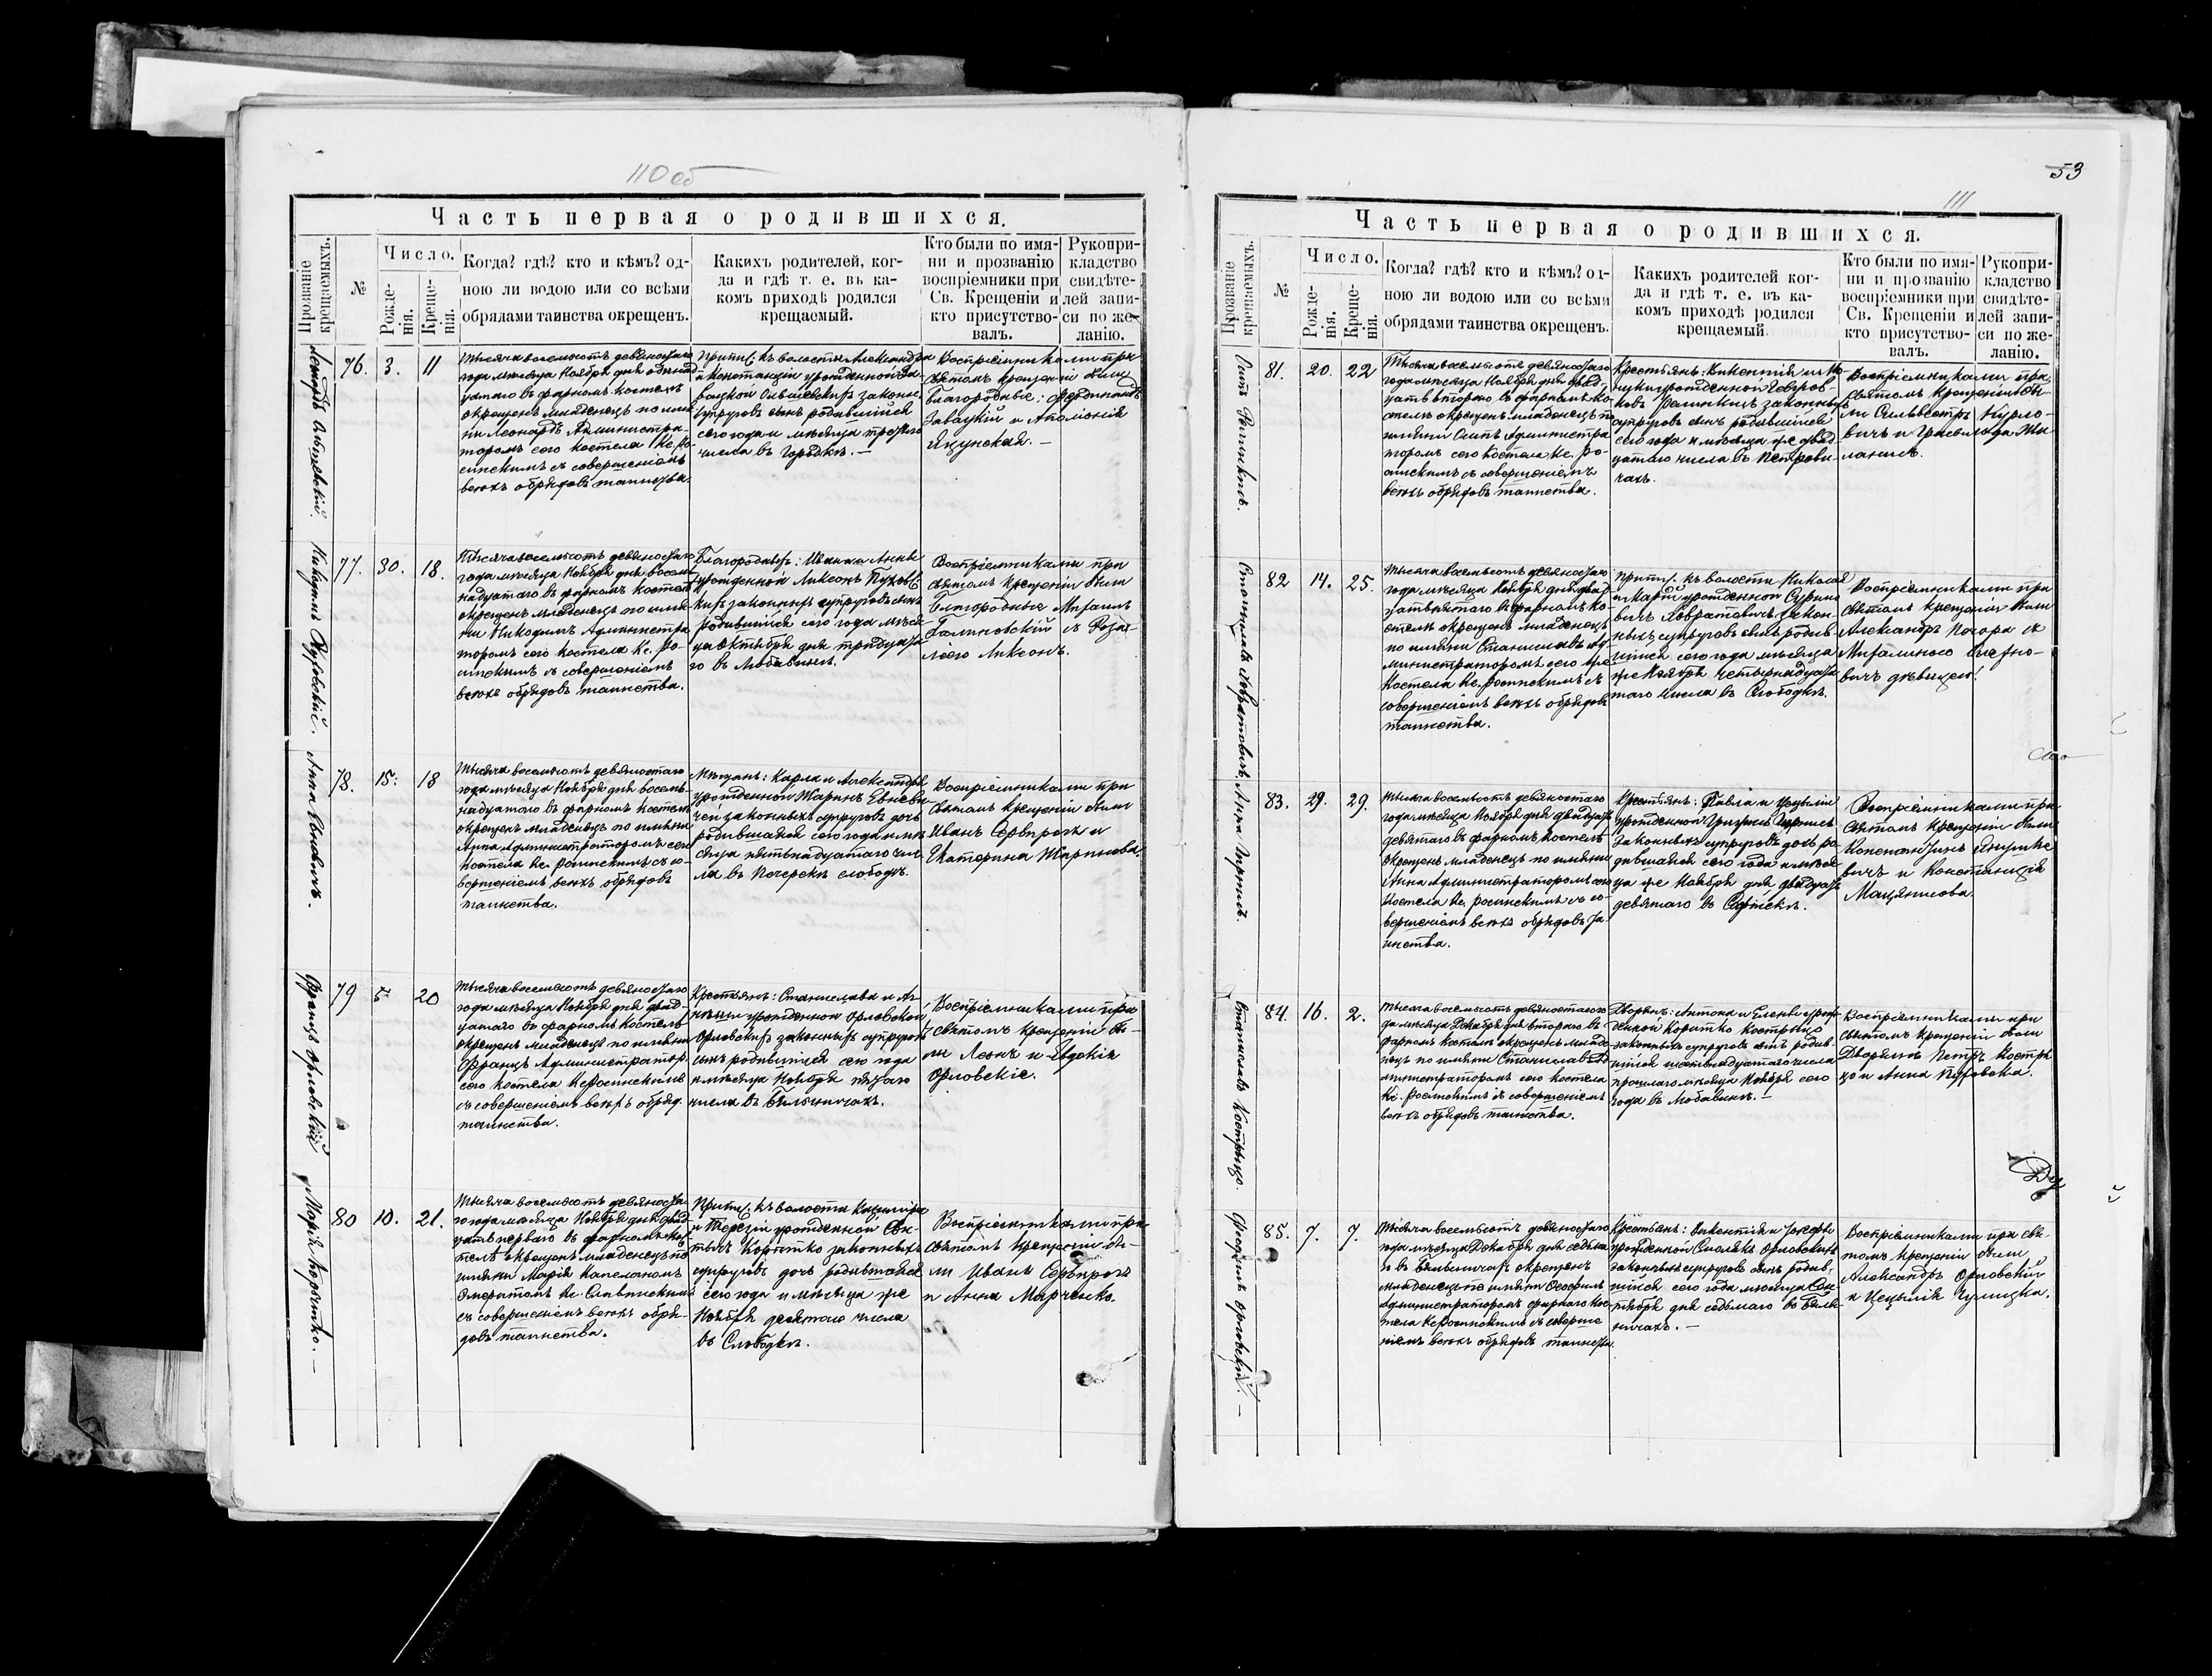 110 об
Часть первая о родившихся.
Прозваніе крещаемыхъ.
№
Число.
Рожде-
нія.
Креще-
нія.
Когда? гдѣ? кто и кѣмъ? од-
ною ли водою или со всѣми
обрядами таинства окрещенъ.
Какихъ родителей, ког-
да и гдѣ т. е. въ ка-
комъ приходѣ родился
крещаемый.
Кто были по имя-
ни и прозванію
воспріемники при
Св. Крещеніи и
кто присутство-
валъ.
Рукопри-
кладство
свидѣте-
лей запи-
си по же-
ланію.
76. 3. 11
Тысяча восемьсотъ девяностаго
года мѣсяца Ноября дня одинад
цатаго въ фарномъ костелѣ
окрещенъ младенецъ по име
ни Леонардъ Администра
торомъ сего костела Кс. Ро
синскимъ съ совершеніемъ
всѣхъ обрядовъ таинства.
Припис. къ волости Александра
и Констанціи урожденной За
вацкой законн.
супруговъ сынъ родившійся
сего года и мѣсяца третьяго
числа въ Городкѣ. —
Воспріемниками при
святомъ крещеніи были
благородные: Фердинандъ
Завацкій и Аполонія
Яцунская. —
Никодимъ Пуховскій.
77. 30. 18.
Тысяча восемьсотъ девяностаго
года мѣсяца Ноября дня восем
надцатаго въ фарномъ костелѣ
окрещенъ младенецъ по име
ни Никодимъ Администра
торомъ сего костела Кс. Ро-
синскимъ съ совершеніемъ
всѣхъ обрядовъ таинства.
Благородныхъ: Ивана и Анны
урожденной Ликсонъ Пуховс
кихъ законныхъ супруговъ сынъ
родившійся сего года мѣся
ца Октября дня тридцата
го въ Любавинѣ.
Воспріемниками при
святомъ крещеніи были
Благородные Михаилъ
Галиновскій съ Роза-
ліею Ликсонъ.
78. 15. 18
Тысяча восемьсотъ девяностаго
года мѣсяца Ноября дня восем-
надцатаго въ фарномъ костелѣ
окрещенъ младенецъ по имени
Анна Администраторомъ сего
костела Кс. Росинскимъ съ со-
вершеніемъ всѣхъ обрядовъ
таинства.
Мѣщанъ: Карла и Александры
урожденной Жаринъ
законныхъ супруговъ дочь
родившаяся сего года и мѣ
сяца пятьнадцатаго чис
ла въ Печерскѣ слободѣ.
Воспріемниками при
святомъ крещеніи были
Иванъ Серпрогъ и
Екатерина Жаринова.
Францъ Орловскій
79 5 20
Тысяча восемьсотъ девяностаго
года мѣсяца Ноября дня двад-
цатаго въ фарномъ костелѣ
окрещенъ младенецъ по имени
Францъ Администратор.
сего костела Кс Росинскимъ
съ совершеніемъ всѣхъ обряд.
таинства.
Крестьянъ: Станислава и Аг
урожденной Орловской
Орловскихъ законныхъ супруговъ
сынъ родившійся сего года
и мѣсяца Ноября пятаго
числа въ Бѣлыничахъ.
Воспріемниками при
святомъ крещеніи бы-
ли Леонъ и Евдокія
Орловскіе.
Марія Корытко. —
80 10. 21.
Тысяча восемьсотъ девяноста
го года мѣсяца Ноября дня двад
цать перваго въ фарномъ кос
телѣ окрещенъ младенецъ по
имени Марія Капеланомъ
Эмеритомъ Кс. Славинскимъ
съ совершеніемъ всѣхъ обря-
довъ таинства.
Припис. къ волости Казиміра
и Терезіи урожденной
Корытко законныхъ
супруговъ дочь родившаяся
сего года и мѣсяца же
Ноября десятаго числа
въ Слободкѣ.
Воспріемниками при
святомъ крещеніи бы-
ли Иванъ Серпрогъ
и Анна Марченко.
53
111
Часть первая о родившихся.
Прозваніе крещаемыхъ.
№
Число.
Рожде-
нія.
Креще-
нія.
Когда? гдѣ? кто и кѣмъ? од-
ною ли водою или со всѣми
обрядами таинства окрещенъ.
Какихъ родителей ког-
да и гдѣ т. е. въ ка-
комъ приходѣ родился
крещаемый.
Кто были по имя-
ни и прозванію
воспріемники при
Св. Крещеніи и
кто присутство-
валъ.
Рукопри-
кладство
свидѣте-
лей запи-
си по же-
ланію.
81. 20. 22
Тысяча восемьсотъ девяностаго
года мѣсяца Ноября дня двад-
цать втораго въ фарномъ ко-
стелѣ окрещенъ младенецъ по
имени Осипъ Администра
торомъ сего костела Кс. Ро-
синскимъ съ совершеніемъ
всѣхъ обрядовъ таинства.
Крестьянъ: Викентія и
урожденной
законныхъ
супруговъ сынъ родившійся
сего года и мѣсяца же двад
цатаго числа въ Петрови-
чахъ.
Воспріемниками при
святомъ крещеніи бы-
ли Сильвестръ Курло-
вичъ и
82 14. 25.
Тысяча восемьсотъ девяностаго
года мѣсяца Ноября дня двад
цать пятаго въ фарномъ ко-
стелѣ окрещенъ младенецъ
по имени Станиславъ Ад
министраторомъ сего же
Костела Кс. Росинскимъ съ
совершеніемъ всѣхъ обрядовъ
таинства.
Припис. къ волости Николая
и урожденной
закон-
ныхъ супруговъ сынъ родив
шійся сего года мѣсяца
же Ноября четырнадца
таго числа въ Слободкѣ.
Воспріемниками при
святомъ крещеніи были
Александръ Почора и
вичъ дѣвицею.
83. 29. 29.
Тысяча восемьсотъ девяностаго
года мѣсяца Ноября дня двадцать
девятаго въ фарномъ костелѣ
окрещенъ младенецъ по имени
Анна Администраторомъ сего
костела Кс. Росинскимъ съ со-
вершеніемъ всѣхъ обрядовъ та
инства.
Крестьянъ: Павла и Цецыліи
урожденной
законныхъ супруговъ дочь ро
дившаяся сего года и мѣся
ца же Ноября дня двадцать
девятаго въ
Воспріемниками при
святомъ крещеніи были
Константинъ
вичъ и Констанція
Станиславъ Кострыцо.
84. 16. 2.
Тысяча восемьсотъ девяностаго го
да мѣсяца Декабря дня втораго въ
фарномъ костелѣ окрещенъ младе
нецъ по имени Станиславъ Ад
министраторомъ сего костела
Кс. Росинскимъ съ совершеніемъ
всѣхъ обрядовъ таинства.
Дворянъ: Антона и Елены урож
денной Корытко Кострыцо
законныхъ супруговъ сынъ родив
шійся шестьнадцатаго числа
прошлаго мѣсяца Ноября сего
года въ Любавинѣ. —
Воспріемниками при
святомъ крещеніи были
Дворяне Петръ Костры
цо и Анна Пуховска.
85. 7. 7.
Тысяча восемьсотъ девяностаго
года мѣсяца Декабря дня седьма
го въ Бѣлыничахъ окрещенъ
младенецъ по имени Ѳеофилъ
Администраторомъ фарнаго кос
тела Кс Росинскимъ съ соверше
ніемъ всѣхъ обрядовъ таинства.
Крестьянъ: Викентія и Іозефы
урожденной Смолякъ Орловскихъ
законныхъ супруговъ сынъ родив-
шійся сего года мѣсяца Сен
тября дня седьмаго въ Бѣлы-
ничахъ. —
Воспріемниками при свя-
томъ крещеніи были
Александръ Орловскій
и Цецылія